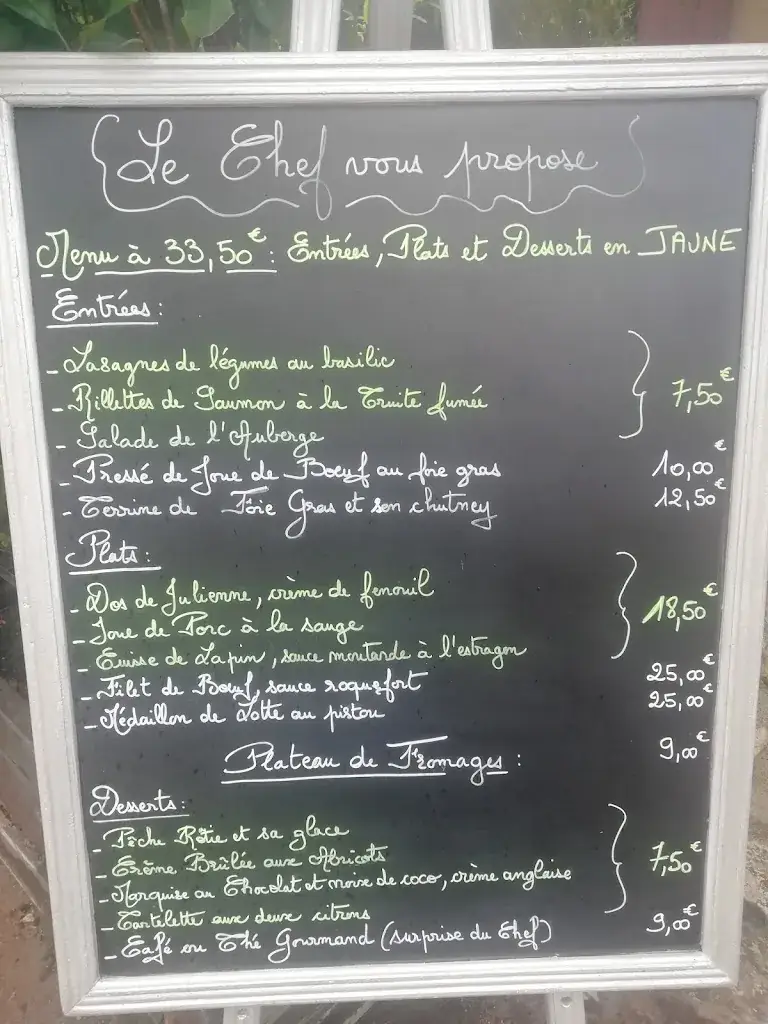 Le Chef vous propose
Menu à 33,50€ : Entrées, Plats et Desserts en JAUNE
Entrées :
- Lasagnes de légumes au basilic
- Rillettes de Saumon à la Truite fumée 7,50€
- Salade de l'Auberge
- Pressé de Joue de Boeuf au foie gras 10,00€
- Terrine de Foie Gras et son chutney 12,50€
Plats :
- Dos de Julienne, crème de fenouil
- Joue de Porc à la sauge 18,50€
- Cuisse de Lapin, sauce moutarde à l'estragon
- Filet de Boeuf, sauce roquefort 25,00€
- Médaillon de Lotte au pistou 25,00€
Plateau de Fromages : 9,00€
Desserts :
- Pêche Rôtie et sa glace
- Crème Brûlée aux Abricots
- Marquise au Chocolat et noix de coco, crème anglaise 7,50€
- Tartelette aux deux citrons
- Café ou Thé Gourmand (surprise du Chef) 9,00€